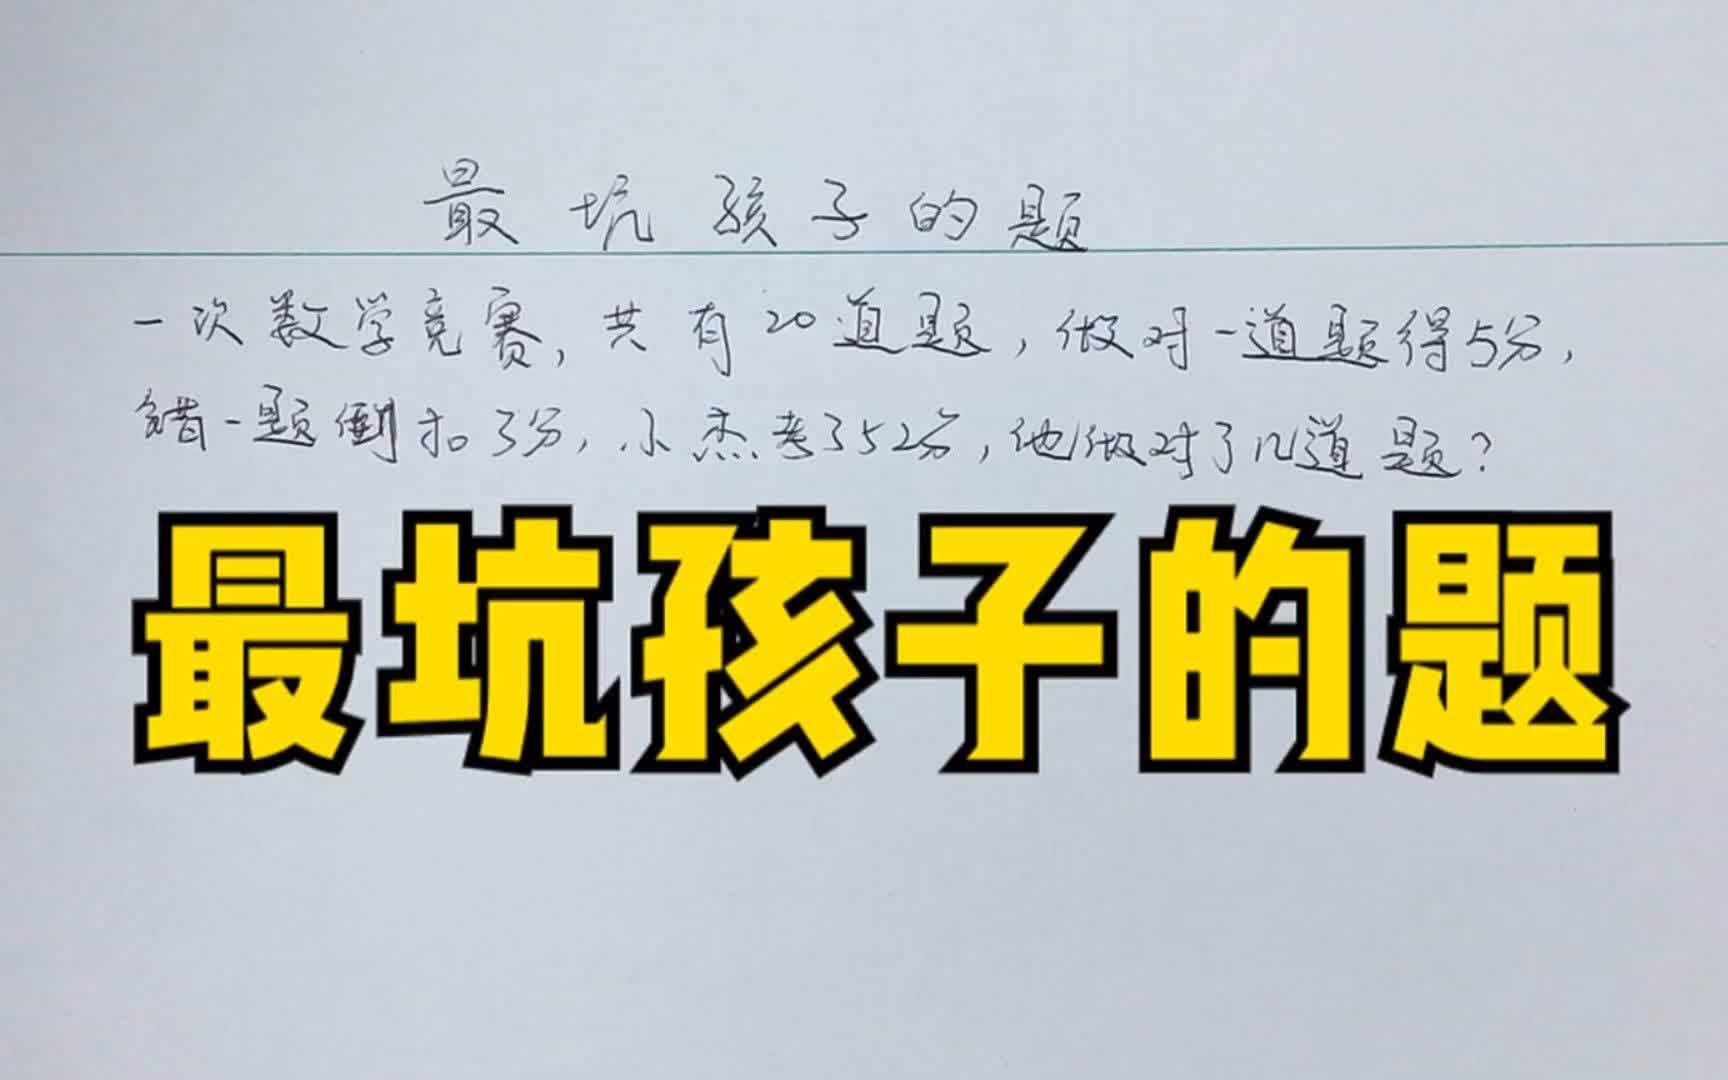 最坑孩子的题
一次数学竞赛，共有20道题，做对一道题得5分，
错一题倒扣3分，小杰考了52分，他做对了几道题？
最坑孩子的题